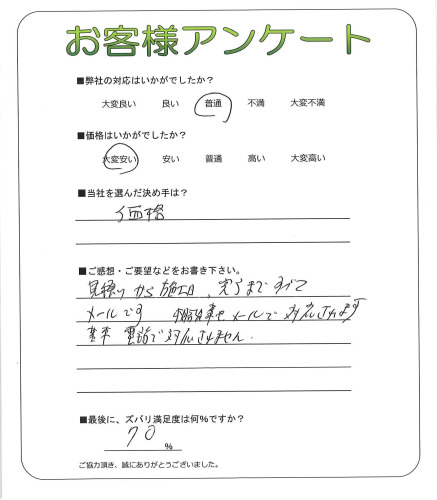 お客様アンケート
■弊社の対応はいかがでしたか?
大変良い 良い 普通 不満 大変不満
■価格はいかがでしたか?
大変安い 安い 普通 高い 大変高い
■当社を選んだ決め手は?
価格
■ご感想・ご要望などをお書き下さい。
見積りから施工日、完了まですべて
メールです メールで対応されます
基本 電話で対応されません.
■最後に、ズバリ満足度は何%ですか?
70
%
ご協力頂き、誠にありがとうございました。